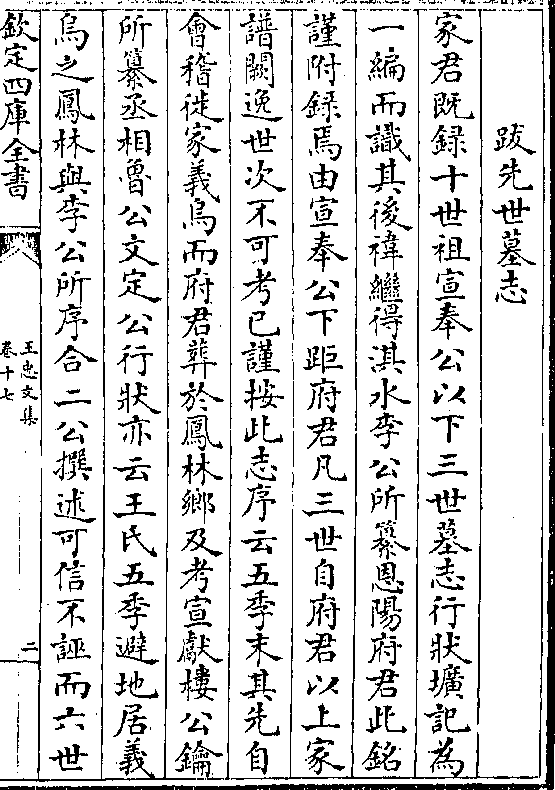 跋先世墓志
家君既録十世祖宣奉公以下三世墓志行狀壙記為
一編而識其後褘繼得淇水李公所纂恩陽府君此銘
謹附録焉由宣奉公下距府君凡三世自府君以上家
譜闕逸世次不可考已謹按此志序云五季末其先自
會稽徙家義烏而府君葬於鳳林鄉及考宣獻樓公鑰
所纂丞相魯公文定公行狀亦云王氏五季避地居義
烏之鳳林與李公所序合二公撰述可信不誣而六世
欽定四庫全書
王忠文集
卷十七
二